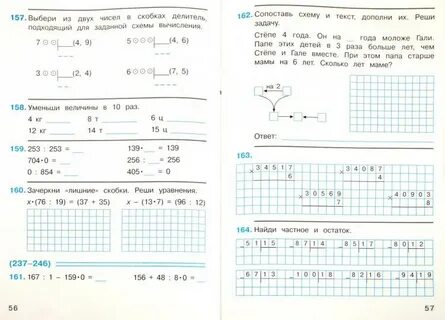 157. Выбери из двух чисел в скобках делитель,
подходящий для заданной схемы вычисления.
7 (4, 9)
5 (4, 6)
3 (2, 4)
6 (7, 5)
158. Уменьши величины в 10 раз.
4 кг 8 т 6 ц
12 кг 14 т 15 ц
159. 253 : 253 = 139· = 139
704·0 = 256 : = 256
0 : 854 = 405· = 0
160. Зачеркни «лишние» скобки. Реши уравнения.
x·(76 : 19) = (37 + 35) x − (13·7) = (96 : 12)
(237–246)
161. 167 : 1 − 159·0 = 156 + 48 : 8·0 =
56
162. Сопоставь схему и текст, дополни их. Реши
задачу.
Стёпе 4 года. Он на года моложе Гали.
Папе этих детей в 3 раза больше лет, чем
Стёпе и Гале вместе. При этом папа старше
мамы на 6 лет. Сколько лет маме?
на 2
Ответ:
163.
× 34517 × 34087
6 4
× 30569 × 40903
7 8
164. Найди частное и остаток.
5115 8714 8715 8012
6713 10013 8618 9419
57